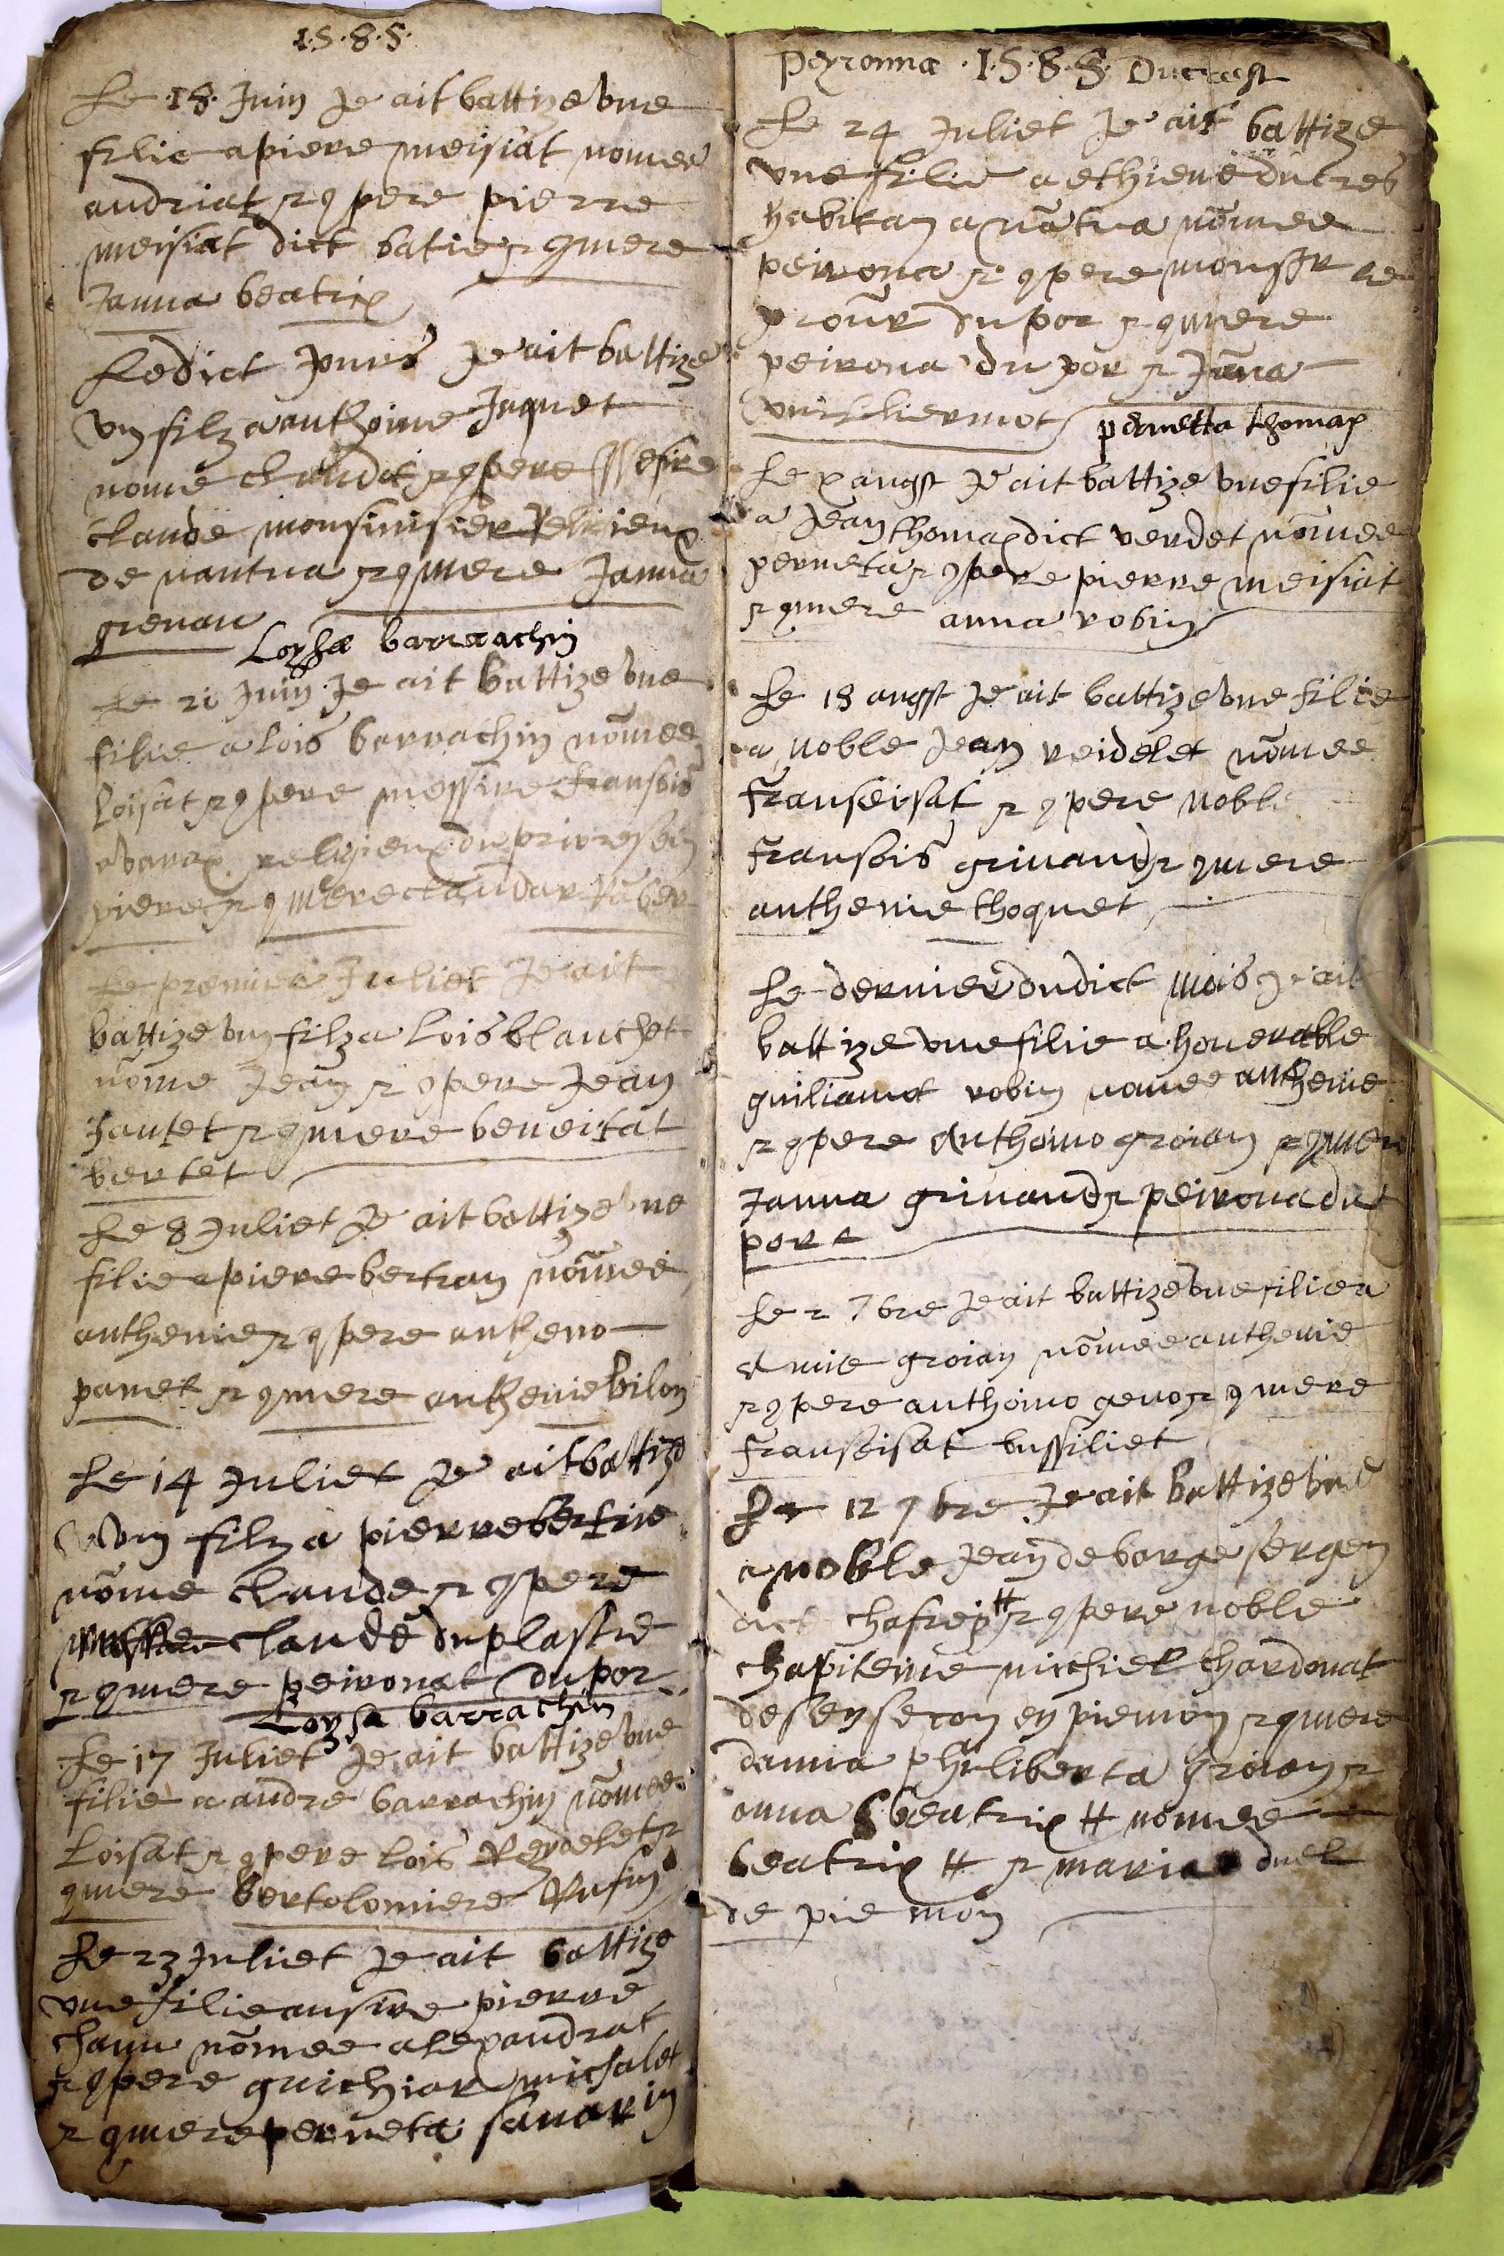 1·5·8·5·
Le 18 Juin Je ait battize une
filie a piere meisiat nomee
andriat et 9pere pierre
meisiat dict batie et 9mere
Janna beatrix
Ledict Jours Je ait battize
un filz a anthoine Jaquet
nome claude et 9pere
claude
de nantua et 9mere Janna
grenau
Loysa barrachin
Le 20 Juin Je ait battize une
filie a lois barrachin nomee
loisat et 9pere messire fransois
religieux du prioresein
piere et 9mere claudar
Le premier Juliet Je ait
battize un filz a lois blanchet
nome Jean et 9pere Jean
Jantet et 9mere beneitat
bertet
Le 8 Juliet Je ait battize une
filie a piere bertran nomee
anthenie et 9pere antheno
panet et 9mere anthenie bilon
Le 14 Juliet Je ait battize
un filz a pierre bertrie
nome claude et 9pere
claude du plastre
et 9mere peironat du por
Loysa barrachin
Le 17 Juliet Je ait battize une
filie a andre barrachin nomee
loisat et 9pere lois Reydelet et
9mere bertolomiere Rufin
Le 23 Juliet Je ait battize
une filie a pierre
chanu nomee alexandrat
et 9pere guichiar michalet
et 9mere perneta savarin
Peyronna 1·5·8·5· Ducrest
Le 24 Juliet Je ait battize
une filie a ethiene du cres
habitan a nātua nōmee
peirona et 9pere
du por et 9mere
peirona du por et Jāna
vuilliermot
pernetta thomax
Le x augst Je ait battize une filie
a Jean thomax dict verdet nōmee
perneta et 9pere pierre meisiat
et 9mere anna robin
Le 18 augst Je ait battize une filie
a noble Jean reidelet nōmee
franseisat et 9pere noble
fransois grinaud et 9mere
anthenie thoquet
Le dernier dudict mois Je ait
battize une filie a honerable
guiliamot robin nomee anthenie
et 9pere anthoino groian et 9mere
Janna grinaud et peirona du
port
Le 2 7bre Je ait battize une filie a
amie groian nōmee anthenie
et 9pere anthoino geno et 9mere
franseisat bussiliet
Le 12 9bre Je ait battize une
a noble Jean de barge sergen
dict et 9pere noble
chapiteine michiel chardonat
en piemon et 9mere
damia philiberta groian et
anna beatrix # nomee
beatrix # et maria
de piemon